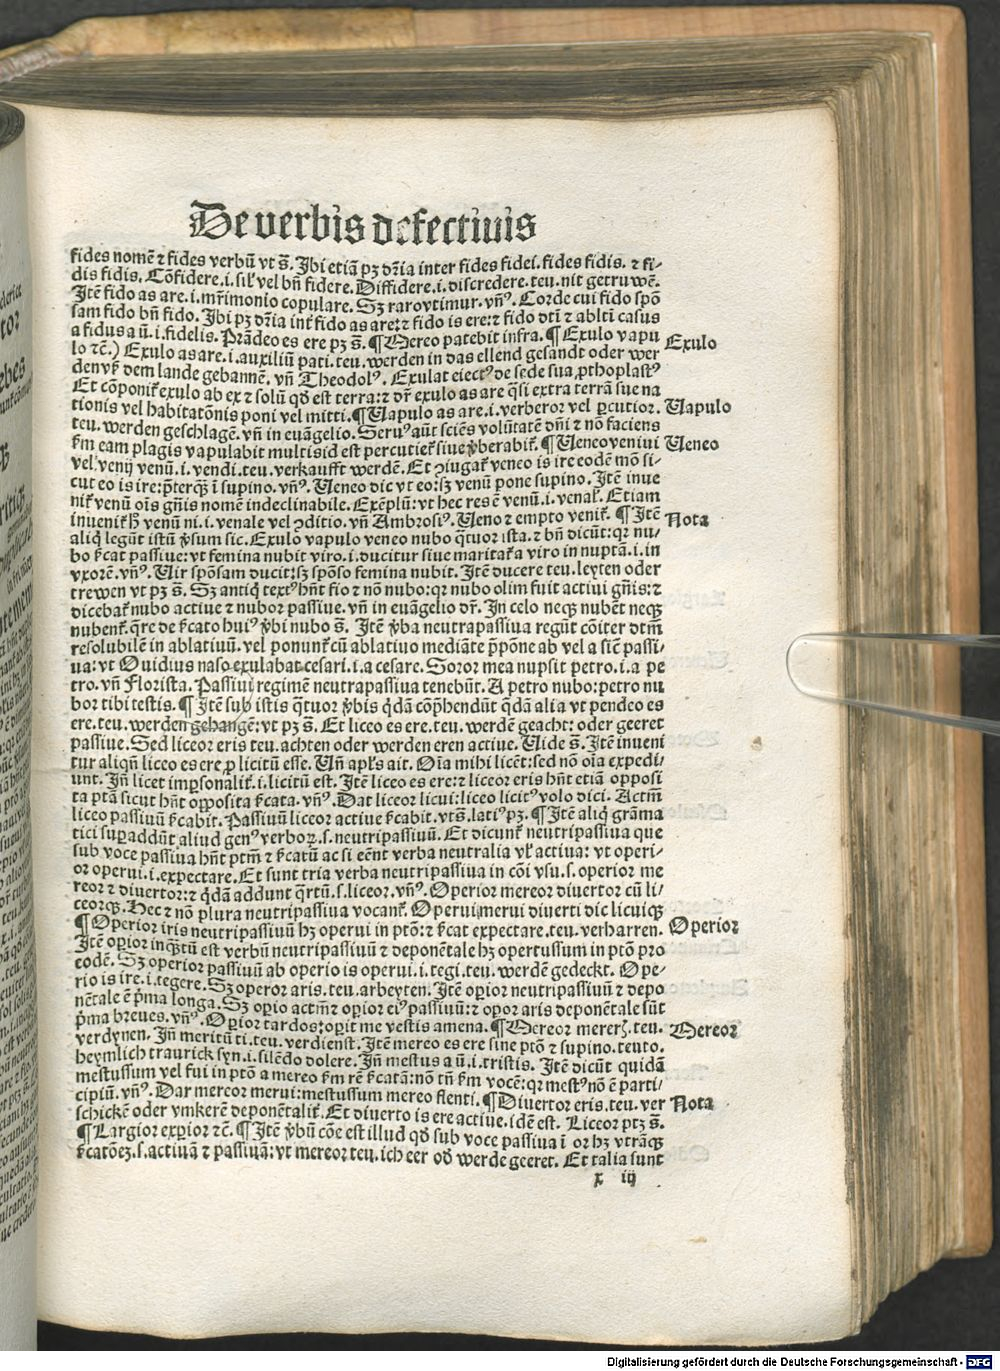 De verbis defectiuis
fides nomē ⁊ fides verbū vt s̄. Ibi etiā pꝫ dr̄ia inter fides fidei. fides fidis. ⁊ fi⸗
dis fidis. Cōfidere .i. sil' vel bn̄ fidere. Diffidere .i. discredere. teu. nit getruwē.
Itē fido as are .i. mr̄imonio copulare. Sꝫ raro vtimur. vnꝰ. Corde cui fido spō
sam fido bn̄ fido. Ibi pꝫ dr̄ia int̄ fido as are: ⁊ fido is ere: ⁊ fido dt̄i ⁊ ablt̄i casus
a fidus a ū .i. fidelis. Prādeo es ere pꝫ s̄. ¶ Mereo patebit infra. ¶ Exulo vapu
lo ⁊c̄.) Exulo as are .i. auxiliū pati. teu. werden in das ellend gesandt oder wer
Exulo
den vß dem lande gebannē. vn̄ Theodolꝰ. Exulat eiectꝰ de sede sua ꝓthoplastꝰ
Et cōponit̄ exulo ab ex ⁊ solū qd̄ est terra: ⁊ dr̄ exulo as are q̄si extra terrā sue na
tionis vel habitatōnis poni vel mitti. ¶ Uapulo as are .i. verberor vel ꝑcutior.
Uapulo
teu. werden geschlagē. vn̄ in euāgelio. Seruꝰ aūt sciēs volūtatē dn̄i ⁊ nō faciens
km̄ eam plagis vapulabit multis id est percutiet̄ siue v̄berabit̄. ¶ Ueneo veniui
Ueneo
vel venij venū .i. vendi. teu. verkaufft werdē. Et ꝯiugat̄ veneo is ire eodē mō si⸗
cut eo is ire: p̄terqꝫ ī supino. vnꝰ. Ueneo dic vt eo: sꝫ venū pone supino. Itē inue
nit̄ venū oīs gn̄is nomē indeclinabile. Exēplū: vt hec res ē venū .i. venal'. Etiam
inuenit̄ h̄ venū ni .i. venale vel ꝯditio. vn̄ Ambrosiꝰ. Ueno ⁊ empto venit̄. ¶ Itē
Nota
aliq̄ legūt istū v̄sum sic. Exulo vapulo veneo nubo q̄tuor ista. ⁊ bn̄ dicūt: qr nu⸗
bo s̄cat passiue: vt femina nubit viro .i. ducitur siue maritat̄ a viro in nuptā .i. in
vxorē. vnꝰ. Uir spōsam ducit: sꝫ spōso femina nubit. Itē ducere teu. leyten oder
trewen vt pꝫ s̄. Sꝫ antiq̄ textꝰ hn̄t fio ⁊ nō nubo: qr nubo olim fuit actiui gn̄is: ⁊
dicebat̄ nubo actiue ⁊ nubor passiue. vn̄ in euāgelio dr̄. In celo necqꝫ nubēt necqꝫ
nubent̄. q̄re de s̄cato huiꝰ v̄bi nubo s̄. Itē v̄ba neutrapassiua regūt cōiter dt̄m̄
resolubilē in ablatiuū. vel ponunt̄ cū ablatiuo mediāte p̄pōne ab vel a siē passi⸗
ua: vt Ouidius naso exulabat cesari .i. a cesare. Soror mea nupsit petro .i. a pe
tro. vn̄ Florista. Passiui regimē neutrapassiua tenebūt. A petro nubo: petro nu
bor tibi testis. ¶ Itē sub istis q̄tuor v̄bis q̄dā cōp̄hendūt q̄dā alia vt pendeo es
ere. teu. werden gehangē: vt pꝫ s̄. Et liceo es ere. teu. werdē geacht: oder geeret
passiue. Sed liceor eris teu. achten oder werden eren actiue. Uide s̄. Itē inueni
tur aliqn̄ liceo es ere ꝓ licitū esse. Un̄ apl's ait. Oīa mihi licēt: sed nō oīa expedi⸗
unt. In̄ licet imꝑsonalit̄ .i. licitū est. Itē liceo es ere: ⁊ liceor eris hn̄t etiā opposi
ta ptā sicut hn̄t opposita s̄cata. vnꝰ. Dat liceor licui: liceo licitꝰ volo dici. Actm̄
liceo passiuū s̄cabit. Passiuū liceor actiue s̄cabit. vt s̄. latiꝰ pꝫ. ¶ Itē aliq̄ grāma
tici suꝑaddūt aliud genꝰ verboꝝ .s. neutripassiuū. Et dicunt̄ neutripassiua que
sub voce passiua hn̄t ptm̄ ⁊ s̄catū ac si eēnt verba neutralia vl' actiua: vt operi⸗
or operui .i. expectare. Et sunt tria verba neutripassiua in cōi vsu .s. operior me
reor ⁊ diuertor: ⁊ q̄dā addunt q̄rtū .s. liceor. vnꝰ. Operior mereor diuertor cū li⸗
ceorqꝫ. Hec ⁊ nō plura neutripassiua vocant̄. Operui merui diuerti dic licuiqꝫ
¶ Operior iris neutripassiuū hꝫ operui in ptō: ⁊ s̄cat expectare. teu. verharren.
Operior
Itē oꝑior inqꝫtū est verbū neutripassiuū ⁊ deponētale hꝫ opertus sum in ptō pro
eodē. Sꝫ operior passiuū ab operio is operui .i. tegi. teu. werdē gedeckt. Ope⸗
rio is ire .i. tegere. Sꝫ operor aris. teu. arbeyten. Itē oꝑior neutripassiuū ⁊ depo
nētale ē p̄ma longa. Sꝫ oꝑio actm̄ ⁊ oꝑior eiꝰ passiuū: ⁊ oꝑor aris deponētale sūt
p̄ma breues. vnꝰ. Oꝑior tardos: oꝑit me vestis amena. ¶ Mereor mererꝭ. teu.
Mereor
verdynen. In̄ meritū ti. teu. verdienst. Itē mereo es ere sine ptō ⁊ supino. teuto.
heymlich traurick syn .i. silēdo dolere. In̄ mestus a ū .i. tristis. Itē dicūt quidā
mestus sum vel fui in ptō a mereo km̄ rē s̄catā: nō tn̄ km̄ vocē: qr mestꝰ nō ē parti⸗
cipiū. vnꝰ. Dat mereor merui: mestus sum mereo flenti. ¶ Diuertor eris. teu. ver
Nota
schickē oder vmkerē deponētalit̄. Et diuerto is ere actiue. idē est. Liceor ptꝫ s̄.
¶ Largior exꝑior ⁊c̄. ¶ Itē v̄bū cōe est illud qd̄ sub voce passiua ī or hꝫ vtrāqꝫ
s̄catōeꝫ .s. actiuā ⁊ passiuā: vt mereor teu. ich eer od̄ werde geeret. Et talia sunt
x iij
Digitalisierung gefördert durch die Deutsche Forschungsgemeinschaft - DFG